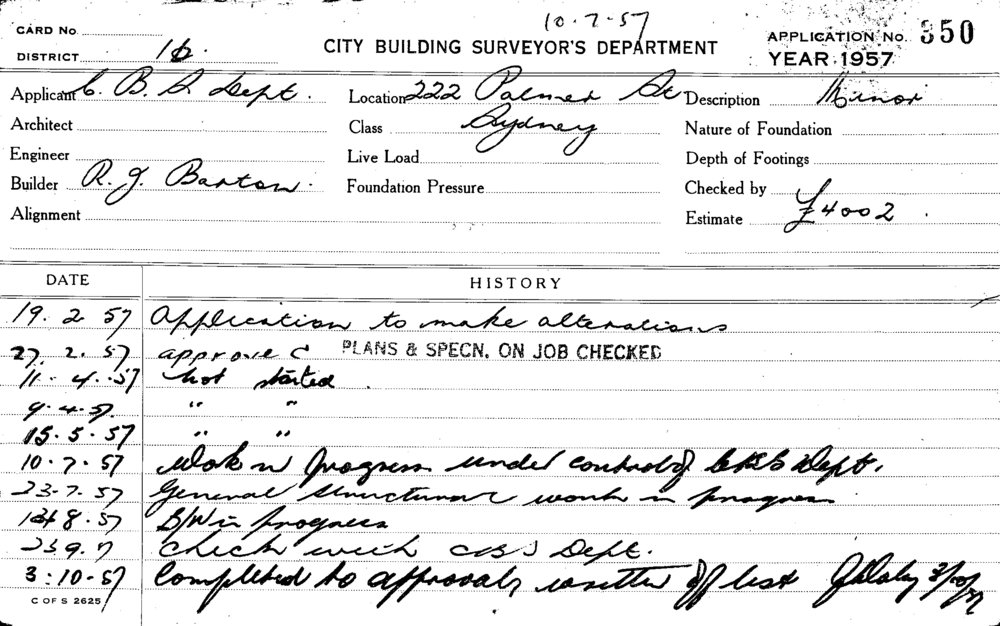 10.7.57
CARD No.
DISTRICT 16.
CITY BUILDING SURVEYOR'S DEPARTMENT
APPLICATION No. 350
YEAR 1957
Applicant C. B. S Dept. Location 222 Palmer St Description Minor
Architect Class Sydney Nature of Foundation
Engineer Live Load Depth of Footings
Builder R. J. Barton. Foundation Pressure Checked by
Alignment Estimate £4002.
DATE HISTORY
19. 2 57 Application to make alterations
27. 2. 57 approve C PLANS & SPECN. ON JOB CHECKED
11. 4. 57 Not started.
9.4.57. " "
15.5.57 " "
10.7.57 Work in progress under control of CBS Dept.
23.7.57 General structural work in progress
8.57 B/W in progress
23 9.7 Check with CBS Dept.
3:10.57 Completed to approval, written off list 3/10/57
C OF S 2625